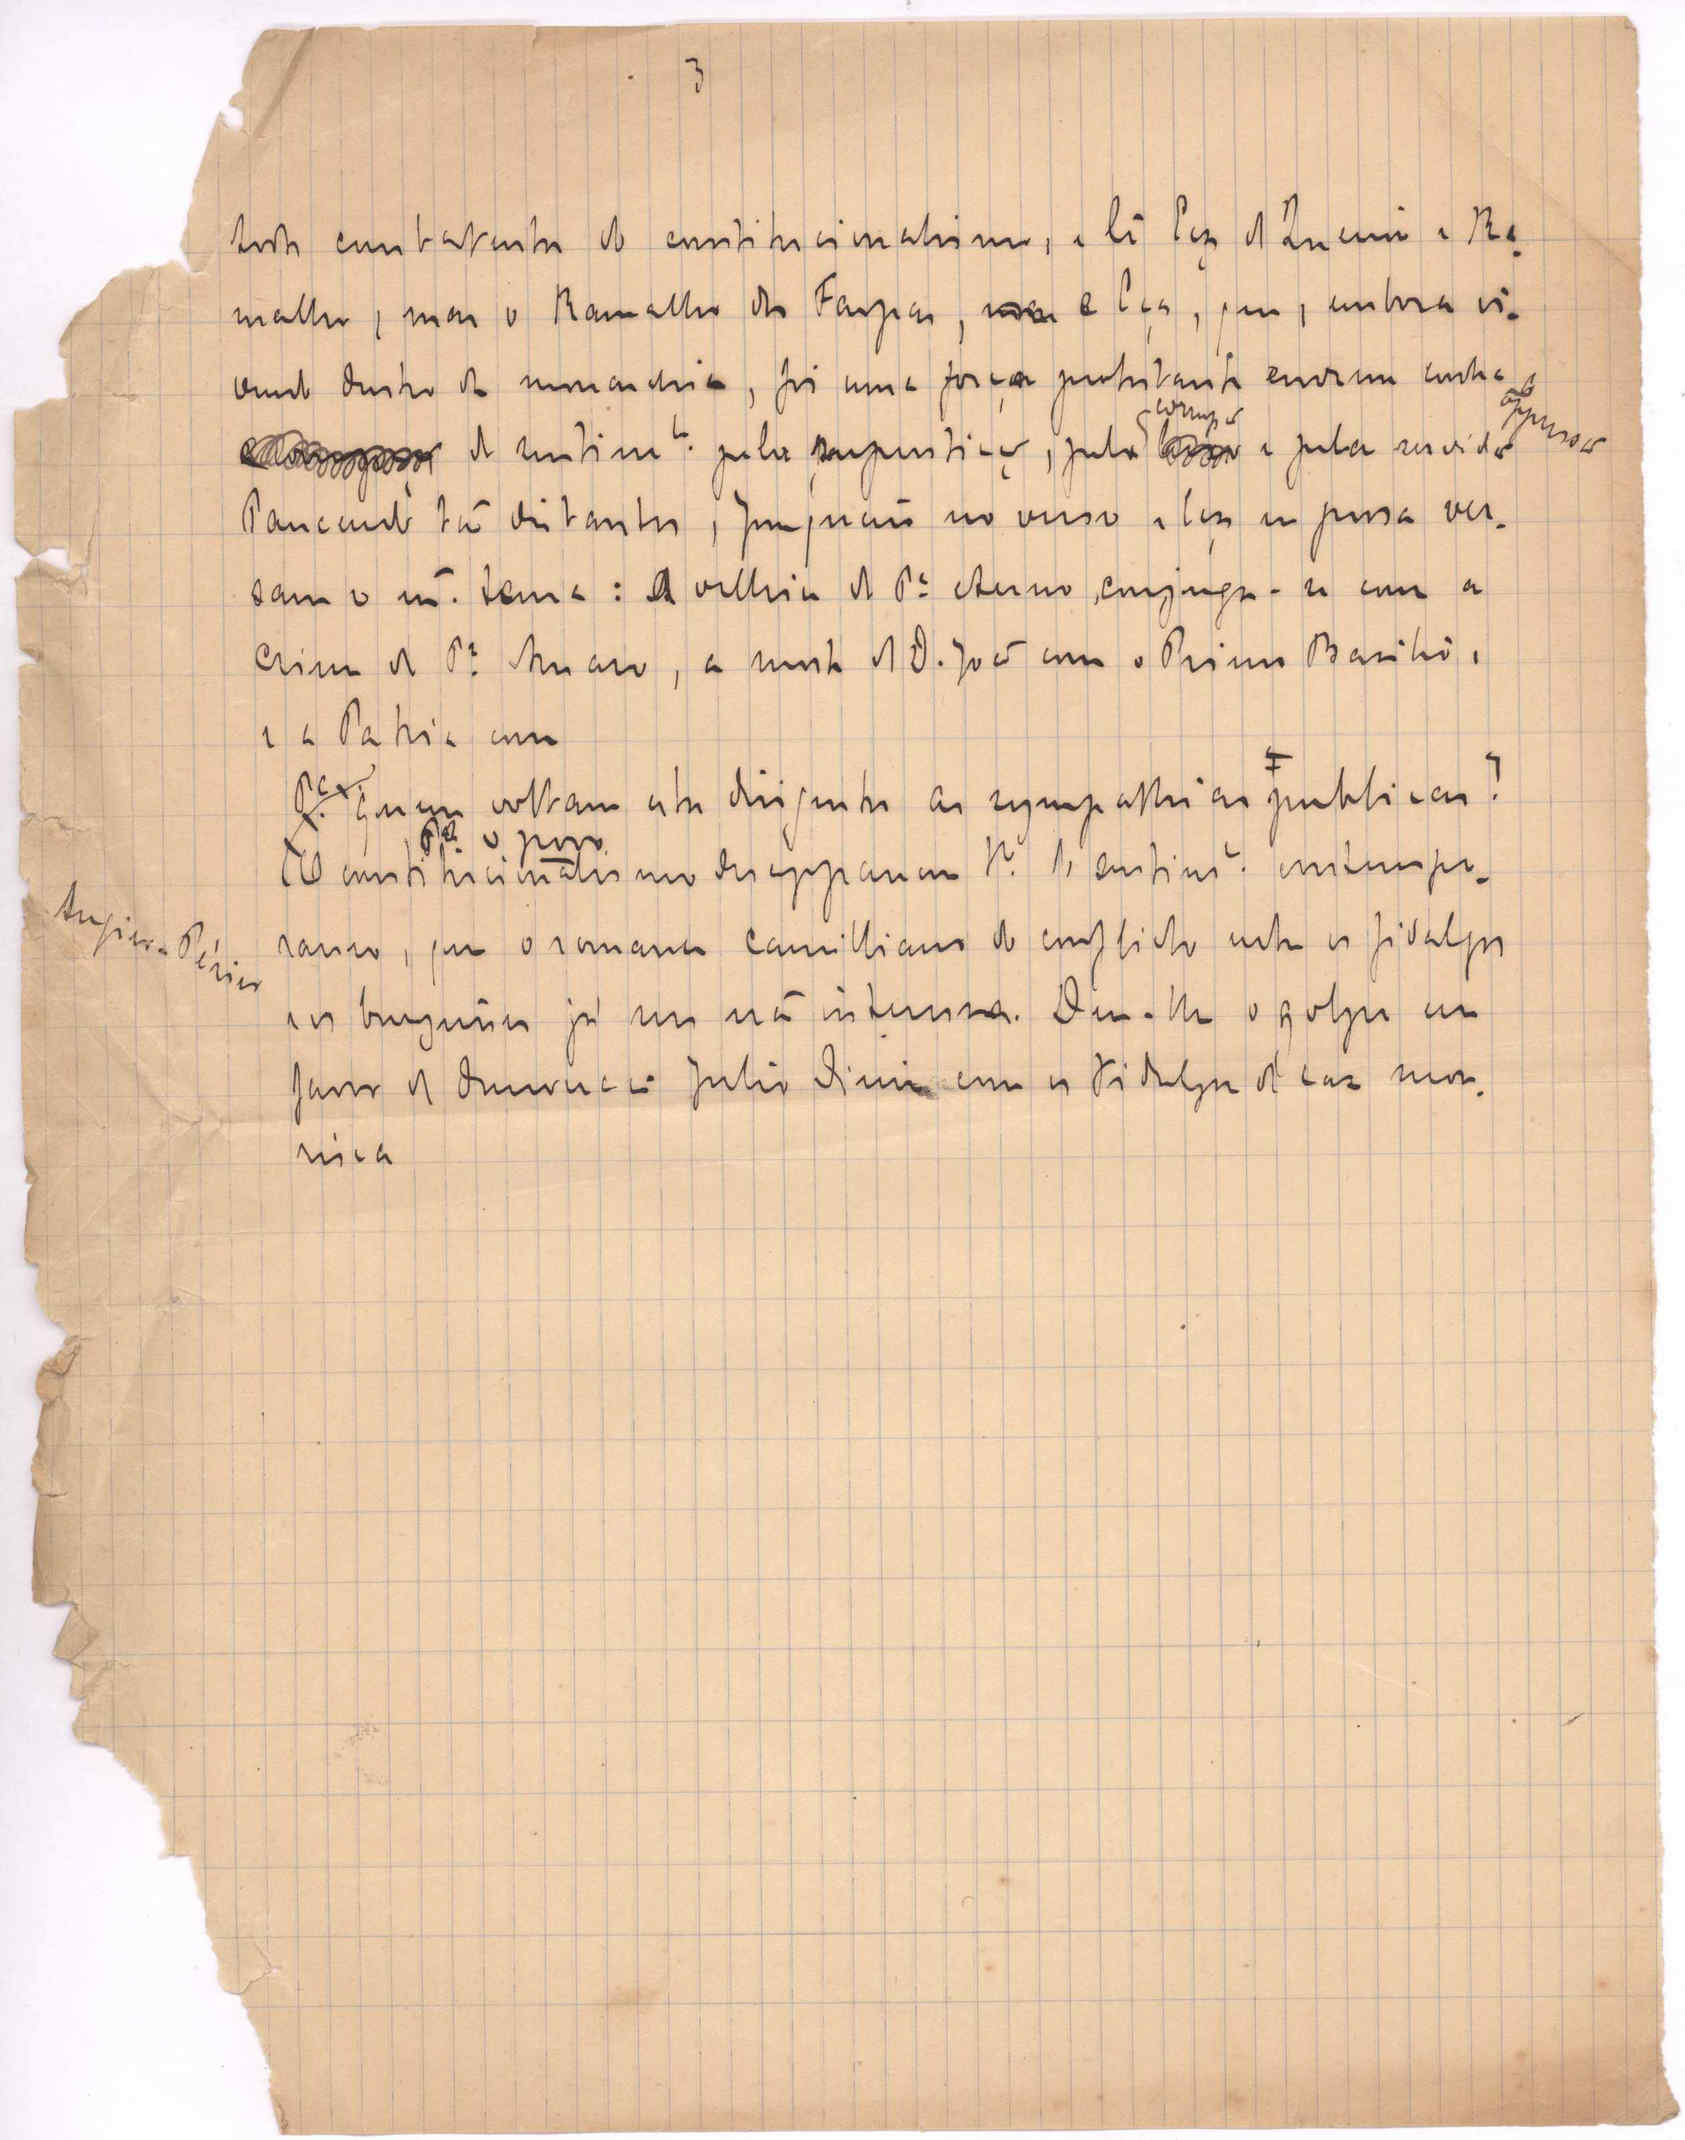 3
contratante do constitucionalismo, e lê Eça de Queiroz e Ra-
malho, mas o Ramalho das Farpas, e Eça, que, embora vi-
vendo dentro da monarchia, foi uma força protestante enorme contra
a oppressão
corrupção
do sentimto. pela superstição, pela e pela servidão
Parecendo tão distantes, Junqueiro no verso e Eça na prosa ver-
sam o m. tema: A velhice do Pe. eterno conjuga-se com o
Crime do Pe. Amaro, a morte de D. João com o Primo Basilio,
e a Patria com
Pa. quem voltam estes dirigentes as sympathias publicas?
Pa. o povo
O constitucionalismo desapparece do sentimto. contempo-
raneo, que o romance camilliano do conflicto entre os fidalgos
e os burguezes já nos não interessa. Deu-lhe o golpe em
favor da democracia Julio Diniz com os Fidalgos da casa mou-
risca